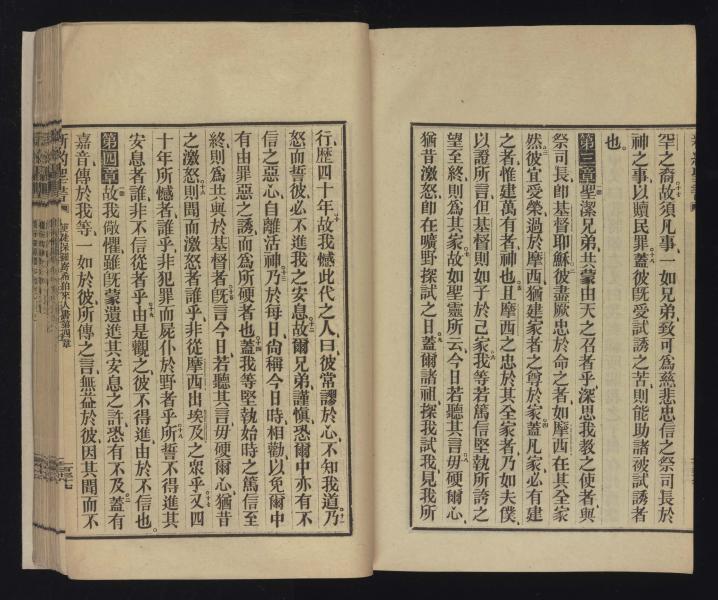 罕之裔故須凡事一如兄弟致可為慈悲忠信之祭司長於
神之事以贖民罪蓋彼旣受試誘之苦則能助諸被試誘者
也
第三章聖潔兄弟共蒙由天之召者乎深思我教之使者與
祭司長卽基督耶穌彼盡厥忠於命之者如摩西在其全家
然彼宜受榮過於摩西猶建家者之尊於家蓋凡家必有建
之者惟建萬有者神也且摩西之忠於其全家者乃如夫僕
以證所言但基督則如子於己家我等若篤信堅執所誇之
望至終則為其家故如聖靈所云今日若聽其言毋硬爾心
猶昔激怒卽在曠野探試之日蓋爾諸祖探我試我見我所
行歷四十年故我憾此代之人曰彼常謬於心不知我道乃
怒而誓彼必不進我之安息故爾兄弟謹慎恐爾中亦有不
信之惡心自離活神乃於每日尙稱今日時相勸以免爾中
有由罪惡之誘而為所硬者也蓋我等堅執始時之篤信至
終則為共與於基督者旣言今日若聽其言毋硬爾心猶昔
之激怒則聞而激怒者誰乎非從摩西出埃及之眾乎又四
十年所憾者誰乎非犯罪而屍仆於野者乎所誓不得進其
安息者誰非不信從者乎由是觀之彼不得進由於不信也
第四章故我儆懼雖旣蒙遺進其安息之許恐有不及蓋有
嘉音傳於我等一如於彼所傳之言無益於彼因其聞而不
新約聖書 使徒保羅寄希伯來人書第四章